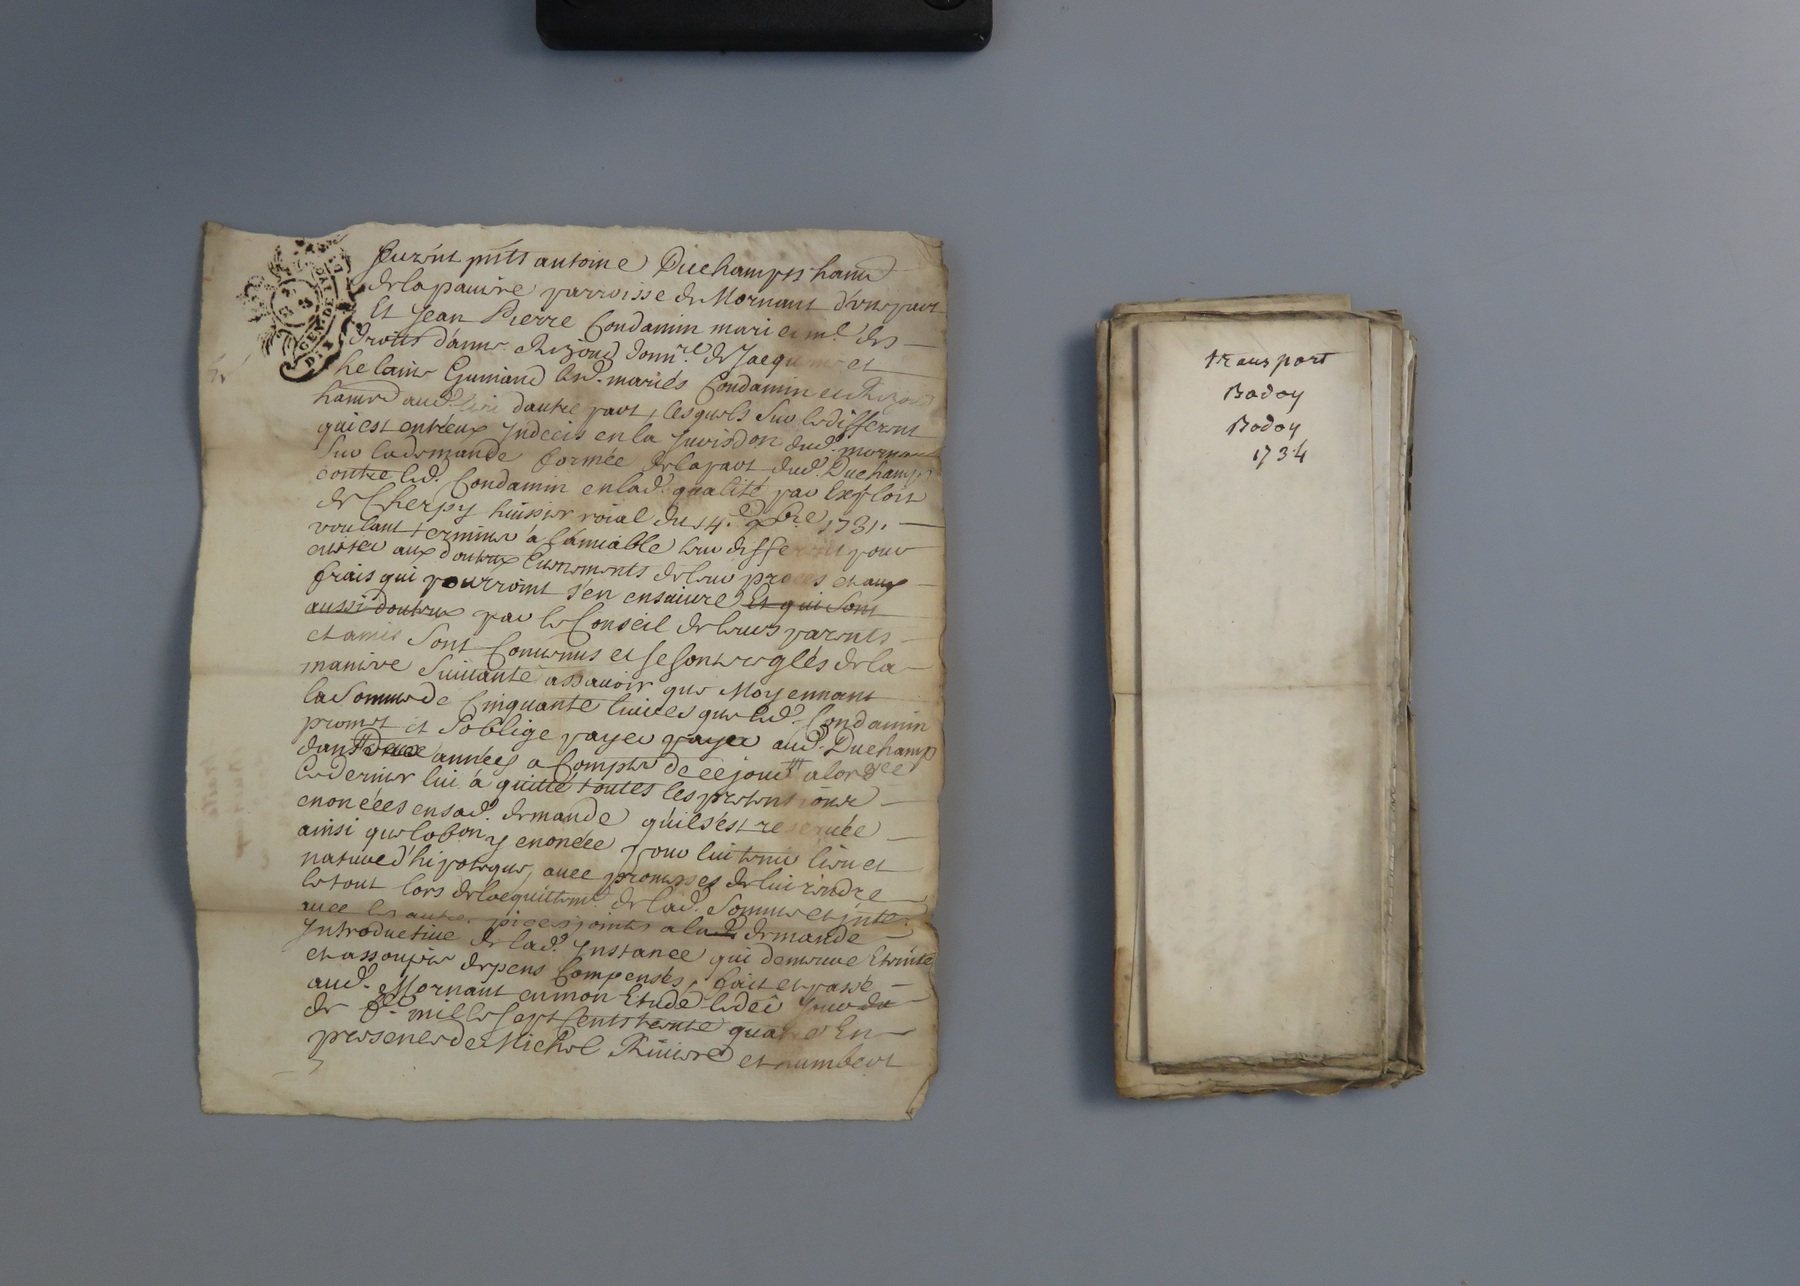 furent pnts antoine Duchamps hant
de la pauire parroisse de Mornant d'une part
Et Jean Pierre Condamin mari et me. des
droits d'anne donnre. de Jacqueme et
helaine Guinand led. mariés Condamin et
hants aud. lieu d'autre part, lesquels sur le different
qui est entr'eux Indecis en la Jurisdon. dud. mornant
sur la demande formée de la part dud. Duchamp
contre led. Condamin en lad. qualité par Exploit
de Cherpy huissier roial du 14.e xbre 1731.
voulant terminer à l'amiable leur different pour
euiter aux douteux Euenements de leur procès et aux
frais qui pourroint s'en ensuiure Et qui sont
aussi douteux par le Conseil de leurs parents
et amis sont Conuenus et se sont reglés de la
maniere suiuante assauoir que Moyennant
la somme de Cinquante liures que led. Condamin
promet et s'oblige payer payer aud. Duchamp
dans deux années a Compter de ce jour
ce dernier lui à quitté toutes les pretentions
enoncées en sad. demande qu'il s'est reseruée
ainsi que l'obon y enoncée pour lui tenir lieu et
nature d'hipoteque, auec promesses de lui rendre
le tout lors de l'acquittemt. de lad. somme et inte.
auec les autres pieces jointes a la demande
Introductiue de lad. Instance qui demeure Eteinte
et assoupie depens Compensés, fait et passé
aud. Mornant en mon Etude le jour du
de mille sept cents trente quatre En
presence de Michel et humbert
GEN. DE
transport
Badoy
Badoy
1734